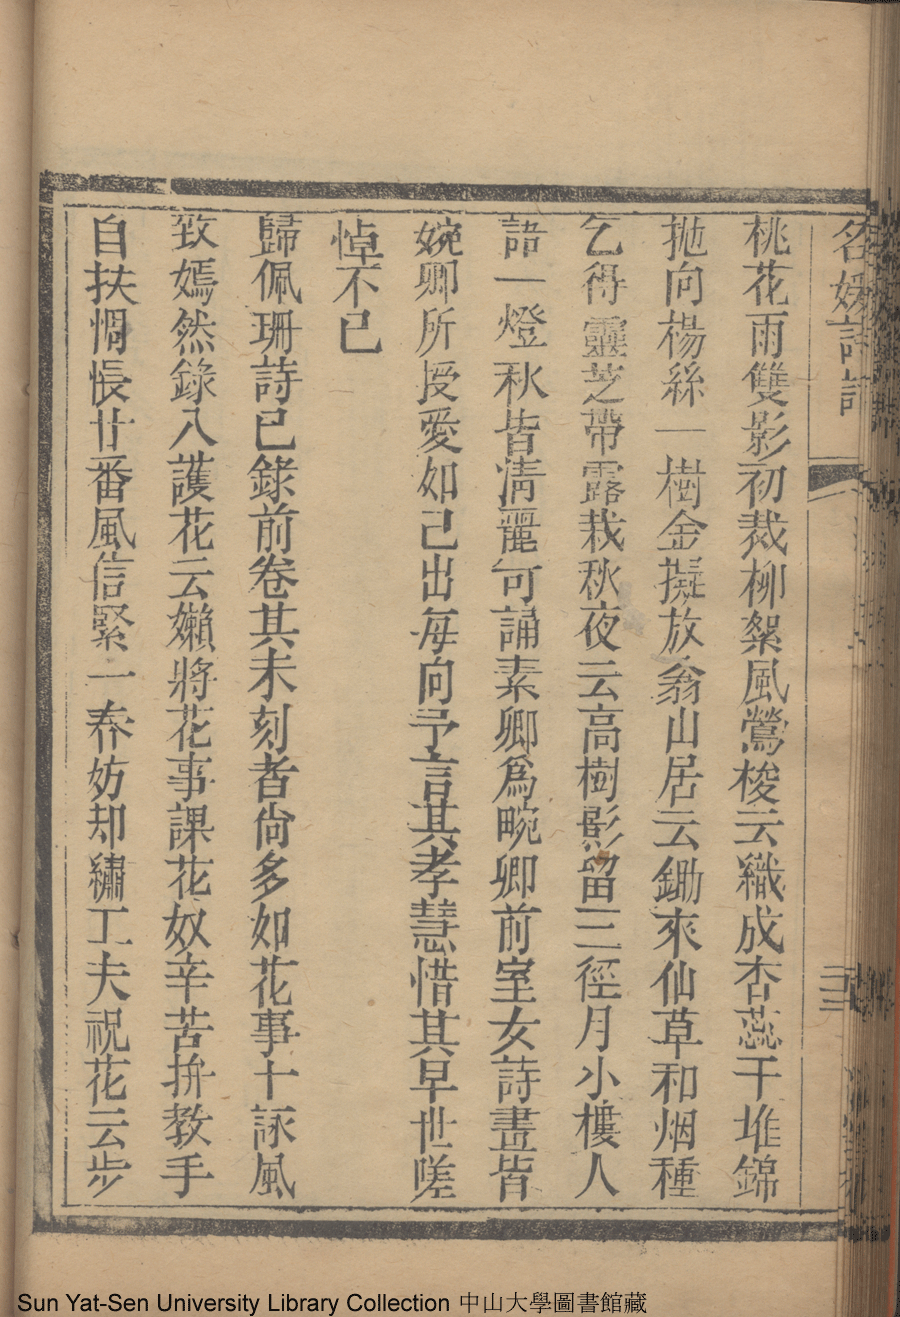 名媛詩話
桃花雨雙影初裁柳絮風鶯梭云織成杏蕊千堆錦
拋向楊絲一樹金擬放翁山居云鋤來仙草和烟種
乞得靈芝帶露栽秋夜云高樹影留三徑月小樓人
語一燈秋皆淸麗可誦素卿爲畹卿前室女詩畫皆
婉卿所授愛如己出每向予言其孝慧惜其早世嗟
悼不已
歸佩珊詩已錄前卷其未刻者尙多如花事十詠風
致嫣然錄入護花云嬾將花事課花奴辛苦拚教手
自扶惆悵廿番風信緊一春妨却繡工夫祝花云步
Sun Yat-Sen University Library Collection 中山大學圖書館藏